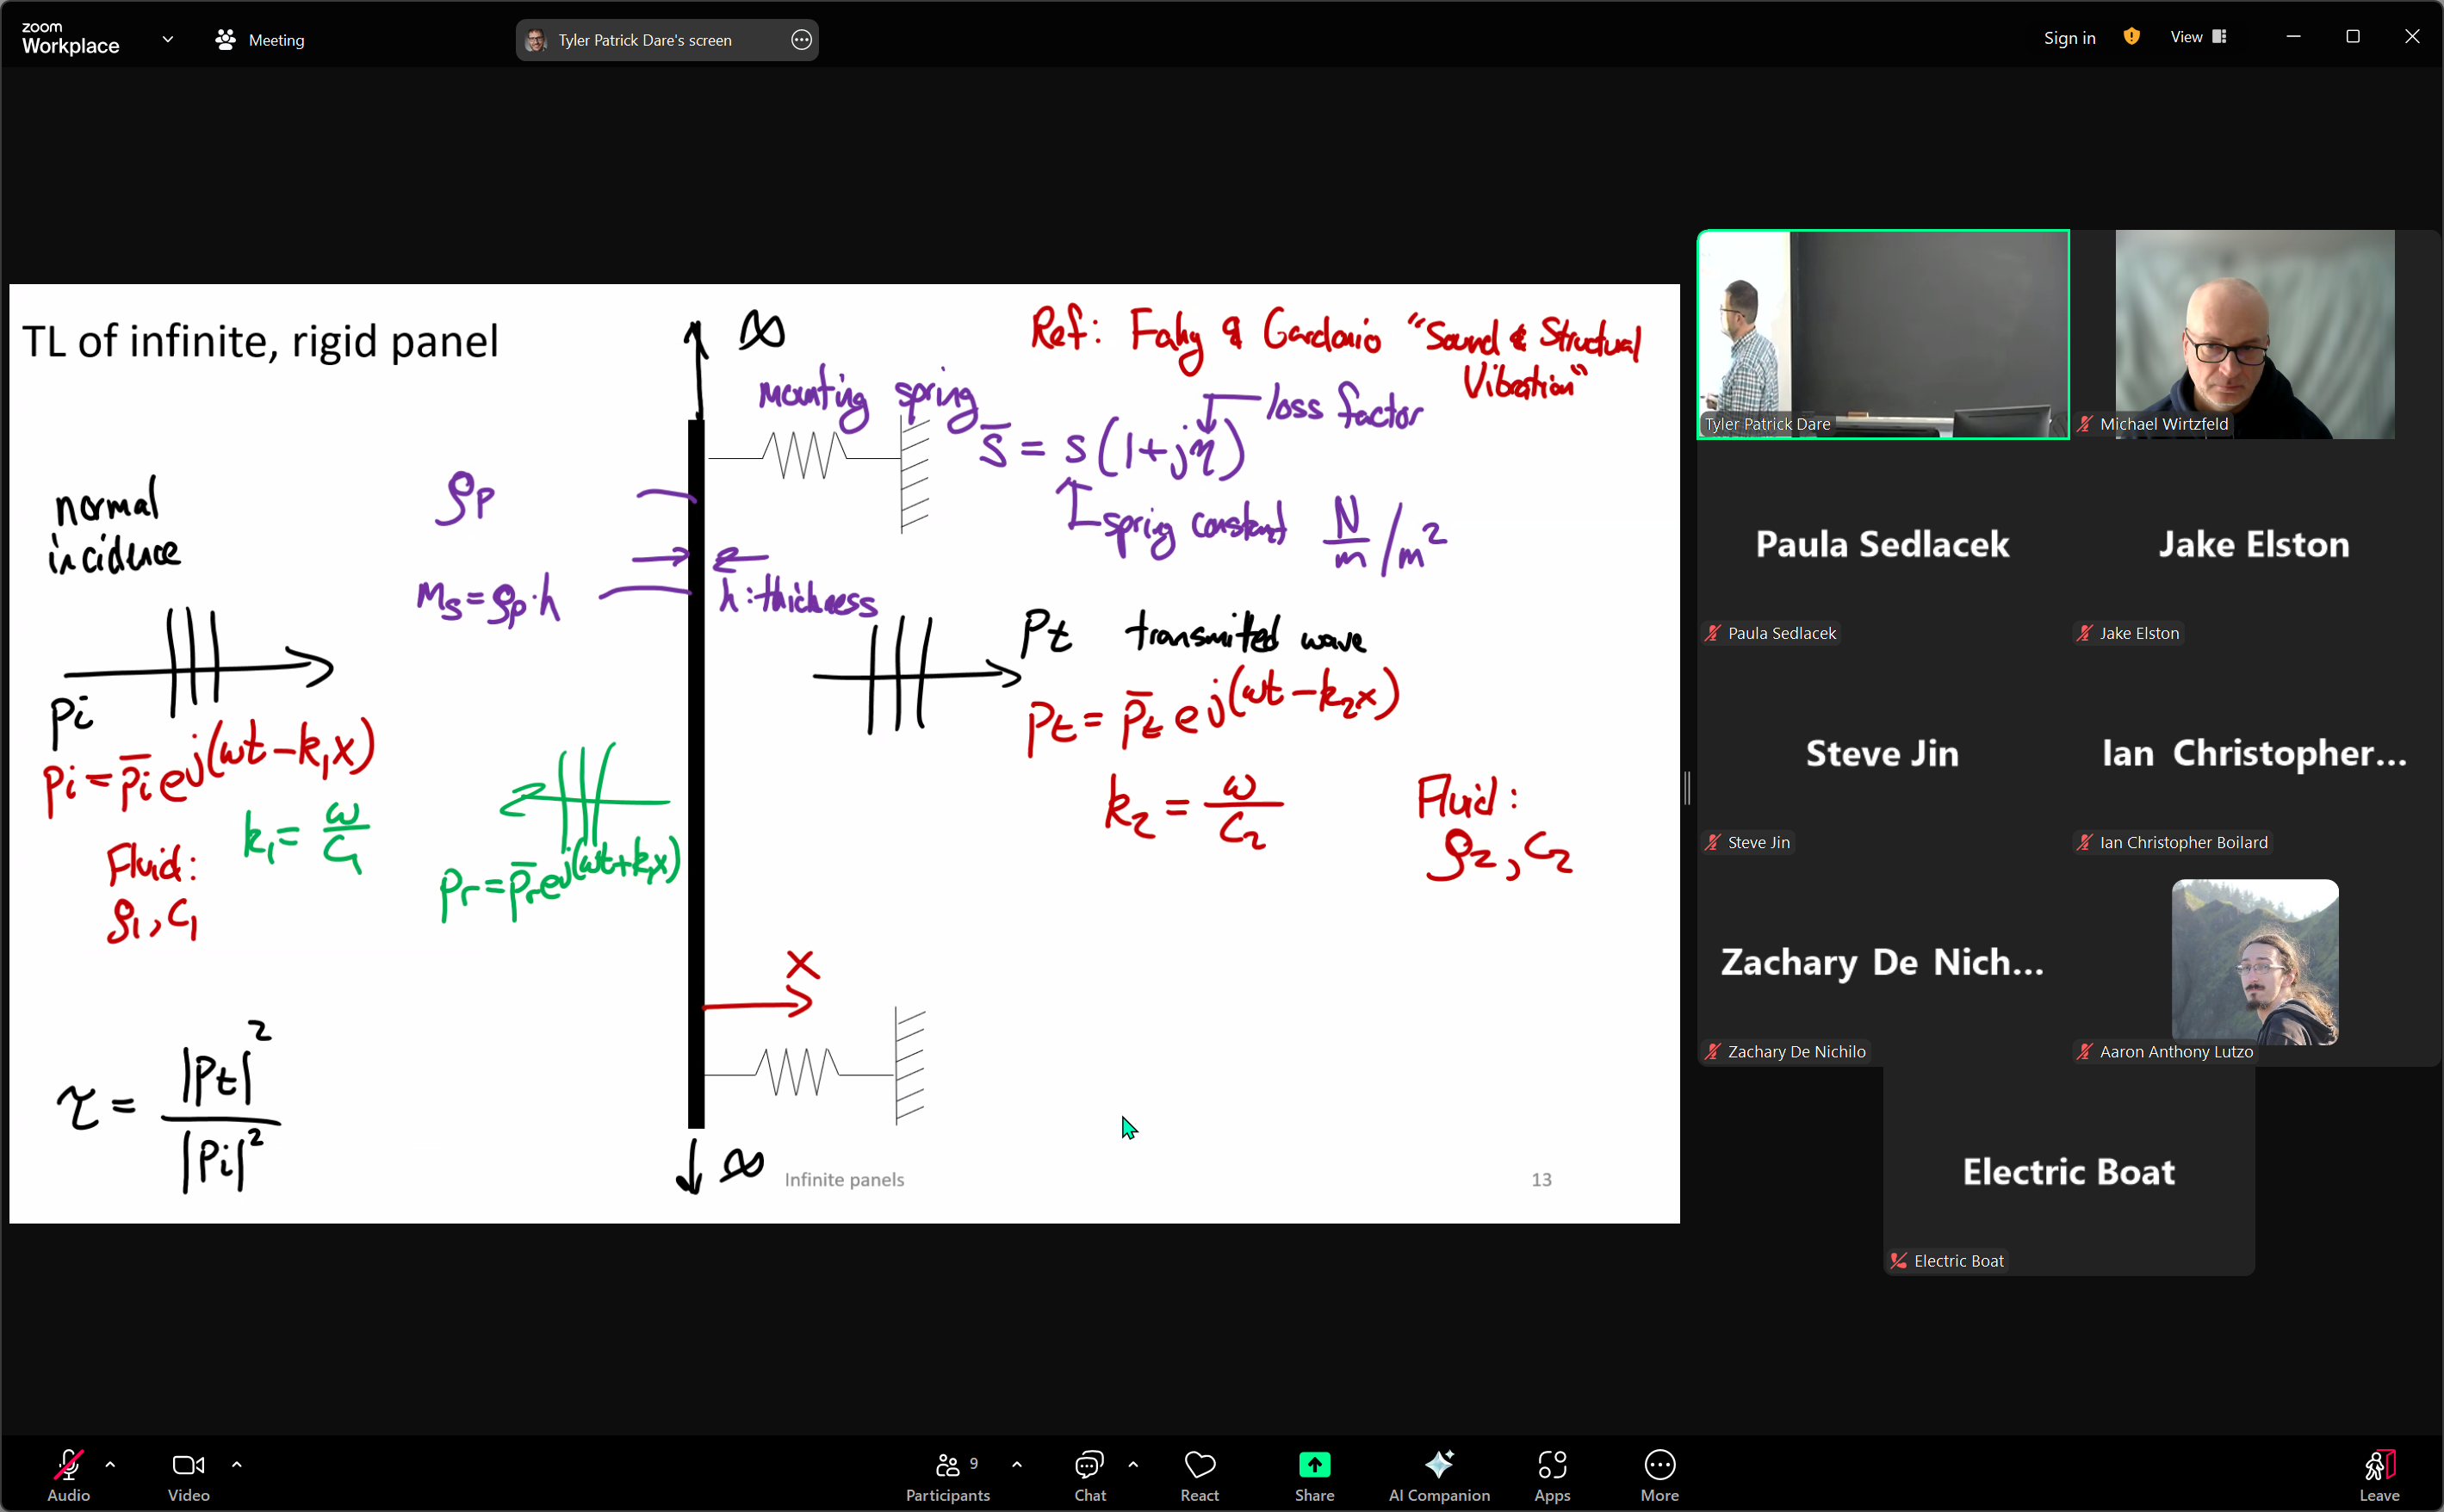 zoom
Workplace
Meeting
Tyler Patrick Dare's screen
Sign in
View
TL of infinite, rigid panel
∞
Ref: Fahy & Gardonio "Sound & Structural
Vibration"
mounting spring
s̅ = s(1+jη)
loss factor
spring constant N/m /m²
normal
incidence
ρp
ms = ρp·h
h: thickness
Pi
pi = p̅i e^j(ωt-k₁x)
k₁ = ω/c₁
Fluid:
ρ₁, c₁
pr = p̅r e^j(ωt+k₁x)
Pt transmitted wave
Pt = p̅t e^j(ωt-k₂x)
k₂ = ω/c₂
Fluid:
ρ₂, c₂
x
τ = |Pt|²/|Pi|²
∞
Infinite panels
13
Tyler Patrick Dare
Michael Wirtzfeld
Paula Sedlacek
Paula Sedlacek
Jake Elston
Jake Elston
Steve Jin
Steve Jin
Ian Christopher...
Ian Christopher Boilard
Zachary De Nich...
Zachary De Nichilo
Aaron Anthony Lutzo
Electric Boat
Electric Boat
Audio
Video
Participants
9
Chat
React
Share
AI Companion
Apps
More
Leave